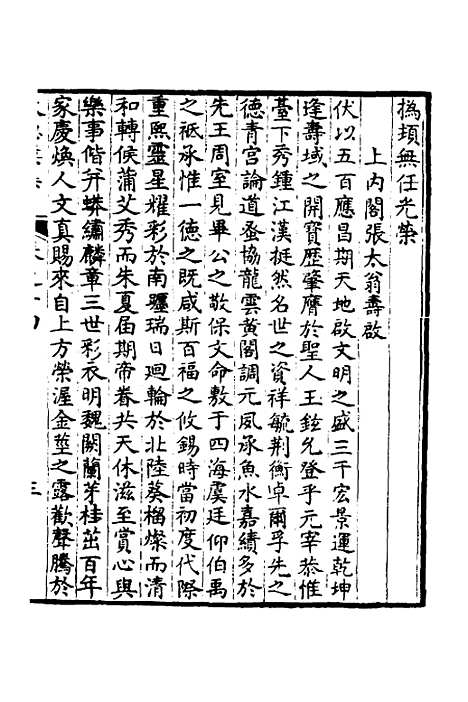 撝項無任光榮
上内閣張太翁壽啟
伏以五百應昌期天地啟文明之盛三千宏景運乾坤
逢壽域之開寶歷肇膺於聖人玉鉉允登乎元宰恭惟
臺下秀鍾江漢挺然名世之資祥毓荆衡卓爾孚先之
德青宫論道蚤協龍雲黄閣調元夙承魚水嘉績多於
先王周室見畢公之敬保文命敷于四海虞廷仰伯禹
之祗承惟一德之既咸斯百福之攸錫時當初度代際
重熙靈星耀彩於南躔瑞日廻輪於北陸葵榴燦而清
和轉候蒲艾秀而朱夏届期帝眷共天休滋至賞心與
樂事偕并蟒繡麟章三世彩衣明魏闕蘭茅桂茁百年
家慶煥人文真賜來自上方榮渥金莖之露歡聲騰於
三